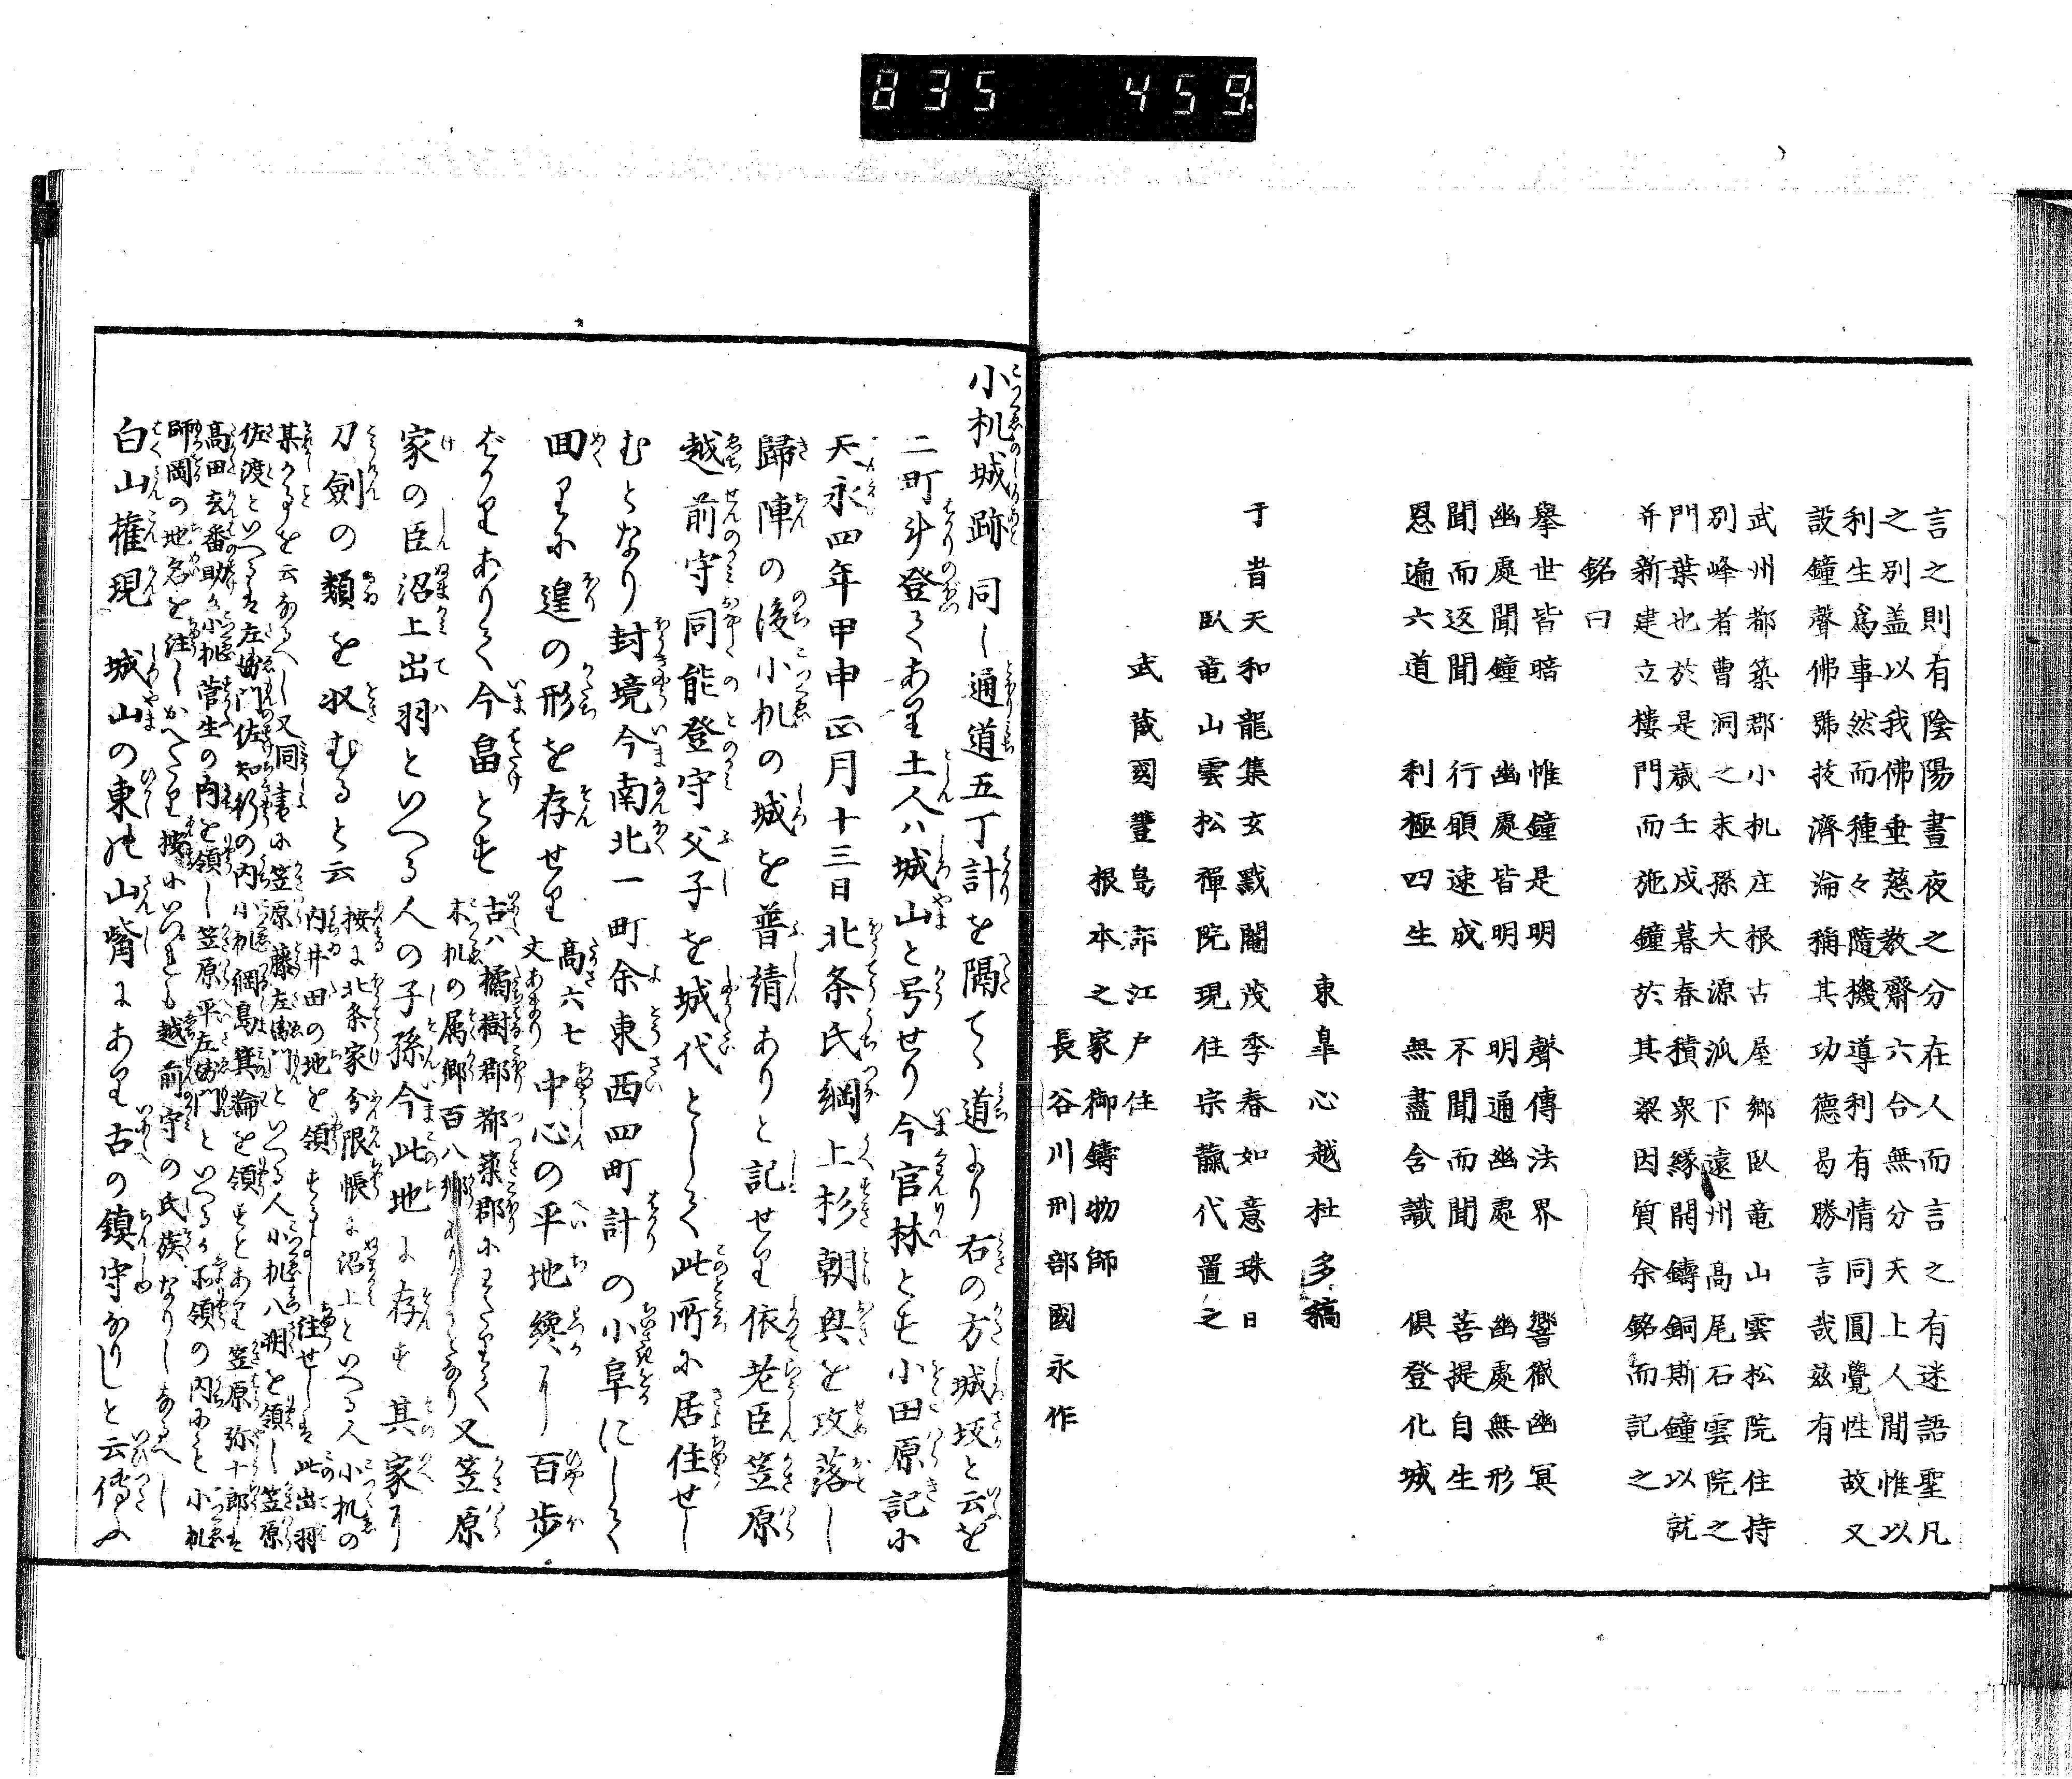 835 459
言之則有陰陽晝夜之分在人而言之有迷語聖凡
之別盖以我佛垂慈教齋六合無分天上人間惟以
利生爲事然而種々隨機導利有情同圓覺性故又
設鐘聲佛號技濟淪稱其功德曷勝言哉茲有
武州都築郡小机庄根古屋郷臥竜山雲松院住持
別峰者曹洞之末孫大源派下遠州高尾石雲院之
門葉也於是歳壬戌暮春積衆緣開鑄銅斯鐘以就
并新建立樓門而施鐘於其梁因質余銘而記之
銘曰
擧世皆暗 惟鐘是明 聲傳法界 響徹幽冥
幽處聞鐘 幽處皆明 明通幽處 幽處無形
聞而返聞 行願速成 不聞而聞 菩提自生
恩遍六道 利極四生 無盡含識 倶登化城
東皐心越杜多稿
于旹天和龍集玄黓閹茂季春如意珠日
臥竜山雲松禪院現住宗䕶代置之
武蔵國豐島郡江戸住
根本之家御鑄物師
長谷川刑部國永作
小机城跡 同し通道五丁計を隔て、道より右の方城坂と云を
二町斗登てあり土人ハ城山と号せり今官林とす小田原記に
大永四年甲申正月十三日北条氏綱上杉朝興を攻落し
歸陣の後小机の城を普請ありと記せり依老臣笠原
越前守同能登守父子を城代として此所に居住せし
むとなり封境今南北一町余東西四町計の小阜にして
回りに湟の形を存せり 高六七丈あまり 中心の平地纔に百歩
ばかりありて今畠とす 古ハ橘樹郡都築郡にわたりて
小机の属郷百八郷ありしとなり 又笠原
家の臣沼上出羽といへる人の子孫今此地に存す其家に
刀劍の類を収むると云 按に北条家分限帳に沼上といへる人小机の
内井田の地を領するよし住せしは此出羽
某かことを云なるへし又同書に笠原藤左衛門といへる人小机八朔を領し笠原
佐渡といへるは左衛門佐知行の内小机綱島箕輪を領すとあり笠原弥十郎は
高田玄番助か小机菅生の内を領し笠原平左衛門といへるか所領の内にも小机
師岡の地名を注しかへたり按にいつれも越前守の氏族なりしあるへし
白山権現 城山の東の山觜にあり古の鎮守なりしと云傳ふ